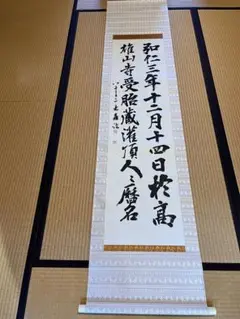 弘仁三年十二月十四日於高
雄山寺受胎蔵灌頂人々暦名